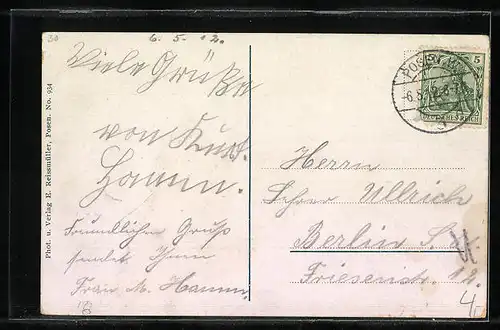 30
6. 5. 12.
Viele Grüße
von Kurt
Hamm.
Freundlichen Gruß
sendet Ihnen
Frau M. Hamm.
Phot. u. Verlag E. Reissmüller, Posen. No. 934
5
POSEN
DEUTSCHES REICH
Herrn
Lehrer Ullrich
Berlin S.
Friesenstr. 12.